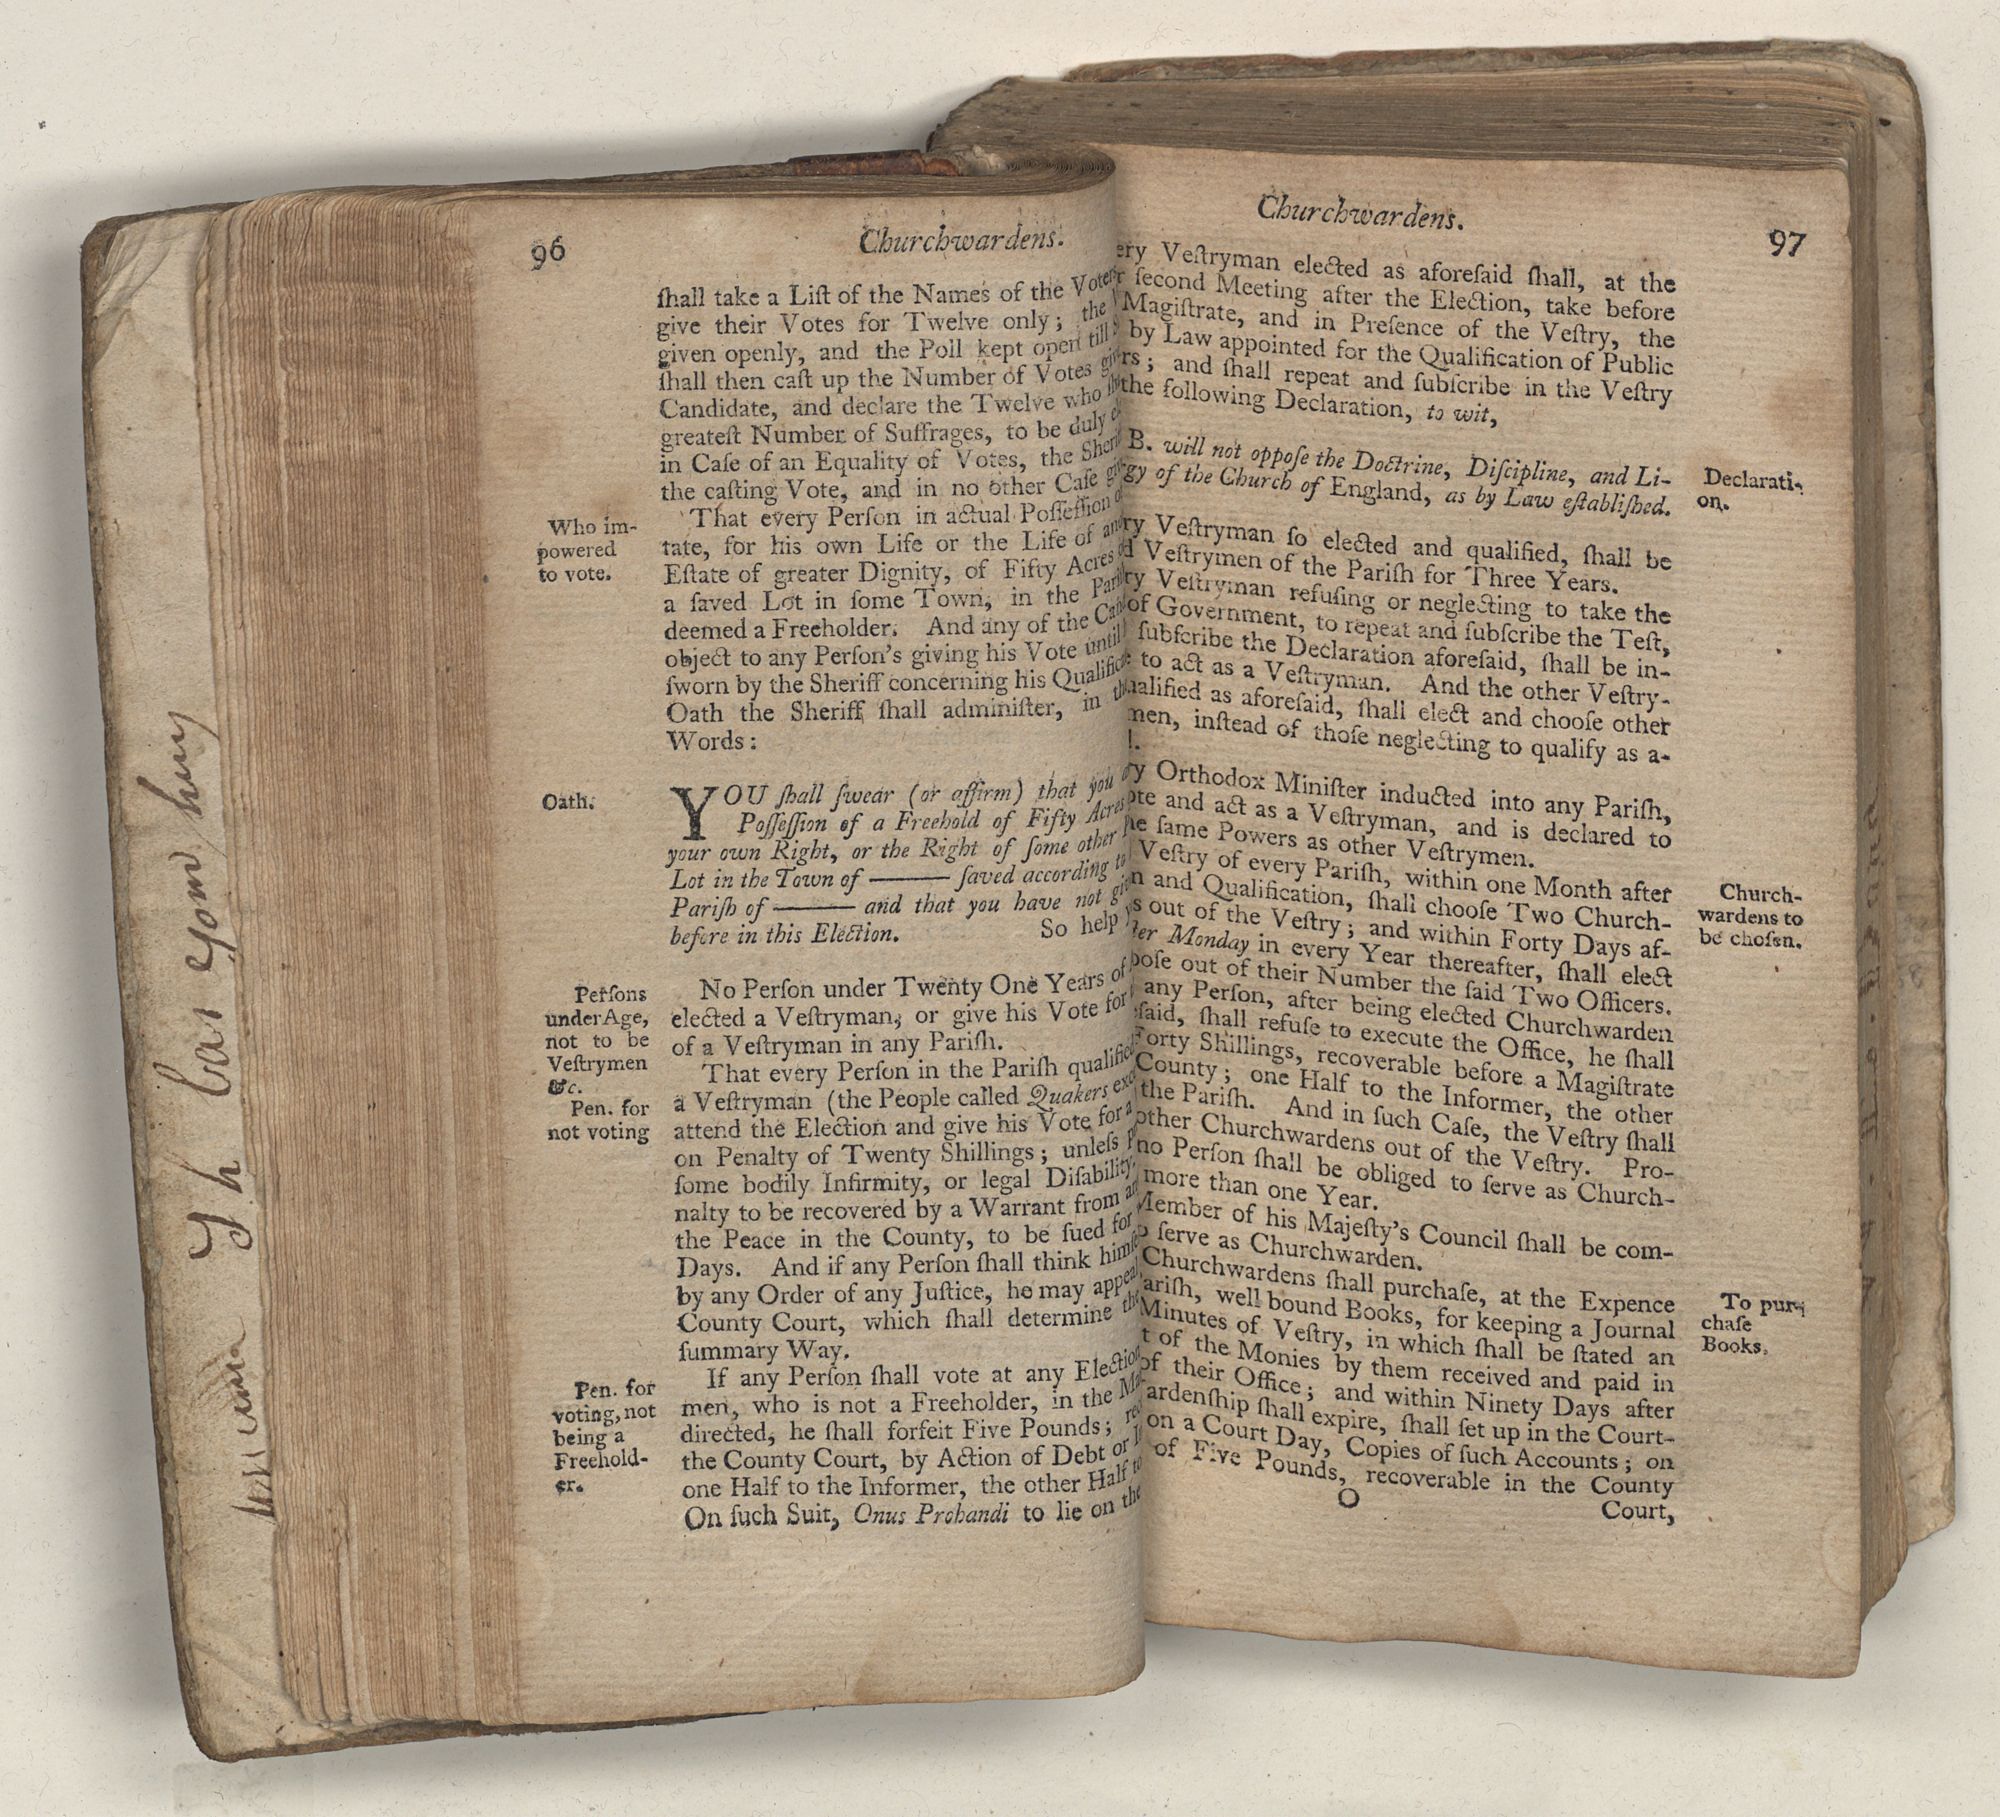 96
Churchwardens.
ſhall take a Liſt of the Names of the Voters
give their Votes for Twelve only; the
given openly, and the Poll kept open till
ſhall then caſt up the Number of Votes
Candidate, and declare the Twelve who
greateſt Number of Suffrages, to be duly
in Caſe of an Equality of Votes, the Sheri
the caſting Vote, and in no other Caſe
Who im-
powered
to vote.
That every Perſon in actual Poſſeſſion
tate, for his own Life or the Life of
Eſtate of greater Dignity, of Fifty Acres
a ſaved Lot in ſome Town, in the Pariſh
deemed a Freeholder. And any of the
object to any Perſon's giving his Vote until
ſworn by the Sheriff concerning his Qualific
Oath the Sheriff ſhall adminiſter, in
Words:
Oath.
YOU ſhall ſwear (or affirm) that you
Poſſeſſion of a Freehold of Fifty Acres
your own Right, or the Right of ſome other
Lot in the Town of ——— ſaved according to
Pariſh of ——— and that you have not
before in this Election. So help
Perſons
under Age,
not to be
Veſtrymen
&c.
No Perſon under Twenty One Years of
elected a Veſtryman, or give his Vote for
of a Veſtryman in any Pariſh.
Pen. for
not voting
That every Perſon in the Pariſh qualified
a Veſtryman (the People called Quakers
attend the Election and give his Vote for
on Penalty of Twenty Shillings; unleſs
ſome bodily Infirmity, or legal Diſability,
nalty to be recovered by a Warrant from
the Peace in the County, to be ſued for
Days. And if any Perſon ſhall think himſe
by any Order of any Juſtice, he may appeal
County Court, which ſhall determine the
ſummary Way.
Pen. for
voting, not
being a
Freehold-
er.
If any Perſon ſhall vote at any Election
men, who is not a Freeholder, in the
directed, he ſhall forfeit Five Pounds;
the County Court, by Action of Debt or
one Half to the Informer, the other Half to
On ſuch Suit, Onus Probandi to lie on the
Churchwardens.
97
ery Veſtryman elected as aforeſaid ſhall, at the
r ſecond Meeting after the Election, take before
Magiſtrate, and in Preſence of the Veſtry, the
by Law appointed for the Qualification of Public
rs; and ſhall repeat and ſubſcribe in the Veſtry
the following Declaration, to wit,
B. will not oppoſe the Doctrine, Diſcipline, and Li-
gy of the Church of England, as by Law eſtabliſhed.
Declarati-
on.
ry Veſtryman ſo elected and qualified, ſhall be
d Veſtrymen of the Pariſh for Three Years.
ry Veſtryman refuſing or neglecting to take the
of Government, to repeat and ſubſcribe the Teſt,
ſubſcribe the Declaration aforeſaid, ſhall be in-
to act as a Veſtryman. And the other Veſtry-
ualified as aforeſaid, ſhall elect and chooſe other
men, inſtead of thoſe neglecting to qualify as a-
d.
ry Orthodox Miniſter inducted into any Pariſh,
ote and act as a Veſtryman, and is declared to
he ſame Powers as other Veſtrymen.
Veſtry of every Pariſh, within one Month after
n and Qualification, ſhall chooſe Two Church-
s out of the Veſtry; and within Forty Days af-
ter Monday in every Year thereafter, ſhall elect
ooſe out of their Number the ſaid Two Officers.
Church-
wardens to
be choſen.
any Perſon, after being elected Churchwarden
eſaid, ſhall refuſe to execute the Office, he ſhall
Forty Shillings, recoverable before a Magiſtrate
County; one Half to the Informer, the other
the Pariſh. And in ſuch Caſe, the Veſtry ſhall
other Churchwardens out of the Veſtry. Pro-
no Perſon ſhall be obliged to ſerve as Church-
more than one Year.
Member of his Majeſty's Council ſhall be com-
o ſerve as Churchwarden.
Churchwardens ſhall purchaſe, at the Expence
ariſh, well bound Books, for keeping a Journal
Minutes of Veſtry, in which ſhall be ſtated an
t of the Monies by them received and paid in
of their Office; and within Ninety Days after
ardenſhip ſhall expire, ſhall ſet up in the Court-
on a Court Day, Copies of ſuch Accounts; on
of Five Pounds, recoverable in the County
To pur-
chaſe
Books.
O
Court,